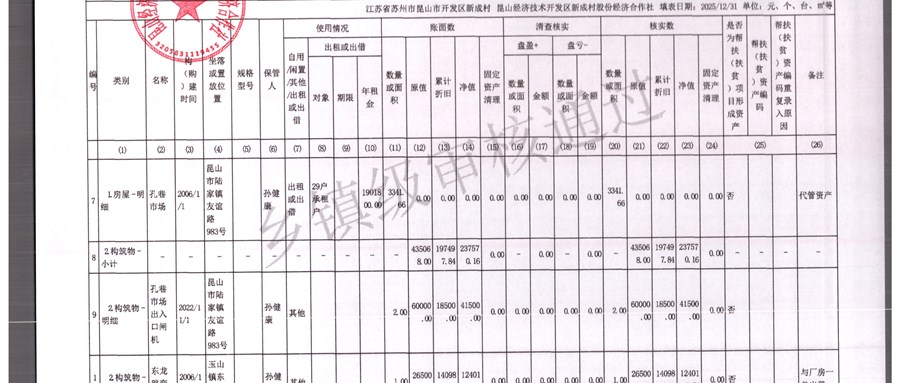 江苏省苏州市昆山市开发区新成村 昆山经济技术开发区新成村股份经济合作社 填表日期: 2025/12/31 单位: 元、个、台、㎡等
编号 类别 名称 构(购)建时间 坐落或置放位置 规格型号 保管人 使用情况 账面数 清查核实 核实数 是否为帮扶(扶贫)项目形成资产 帮扶(扶贫)资产编码 帮扶(扶贫)资产编码重复录入原因 备注
自用/闲置/其他/出租或出借 出租或出借 数量或面积 原值 累计折旧 净值 固定资产清理 盘盈+ 盘亏- 数量或面积 原值 累计折旧 净值 固定资产清理
对象 期限 年租金 数量或面积 金额 数量或面积 金额
(1) (2) (3) (4) (5) (6) (7) (8) (9) (10) (11) (12) (13) (14) (15) (16) (17) (18) (19) (20) (21) (22) (23) (24) (25) (26)
7 1.房屋-明细 孔巷市场 2006/11/1 昆山市陆家镇友谊路983号 孙健康 出租或出借 29户承租户 1901800.00 3341.66 0.00 0.00 0.00 0.00 0.00 0.00 0.00 0.00 3341.66 0.00 0.00 0.00 0.00 否 代管资产
8 2.构筑物-小计 – – – – – – – – – – 435068.00 197497.84 237570.16 0.00 – 0.00 – 0.00 – 435068.00 197497.84 237570.16 0.00 – – – –
9 2.构筑物-明细 孔巷市场出入口闸机 2022/11/1 昆山市陆家镇友谊路983号 孙健康 其他 2.00 60000.00 18500.00 41500.00 0.00 0.00 0.00 0.00 0.00 2.00 60000.00 18500.00 41500.00 0.00 否
2.构筑物- 东龙 2006/1 玉山镇东 孙健 其他 1.00 26500 14098 12401 0.00 0.00 0.00 0.00 0.00 1.00 26500 14098 12401 0.00 否 与厂房一
乡镇级审核通过
3205831119455